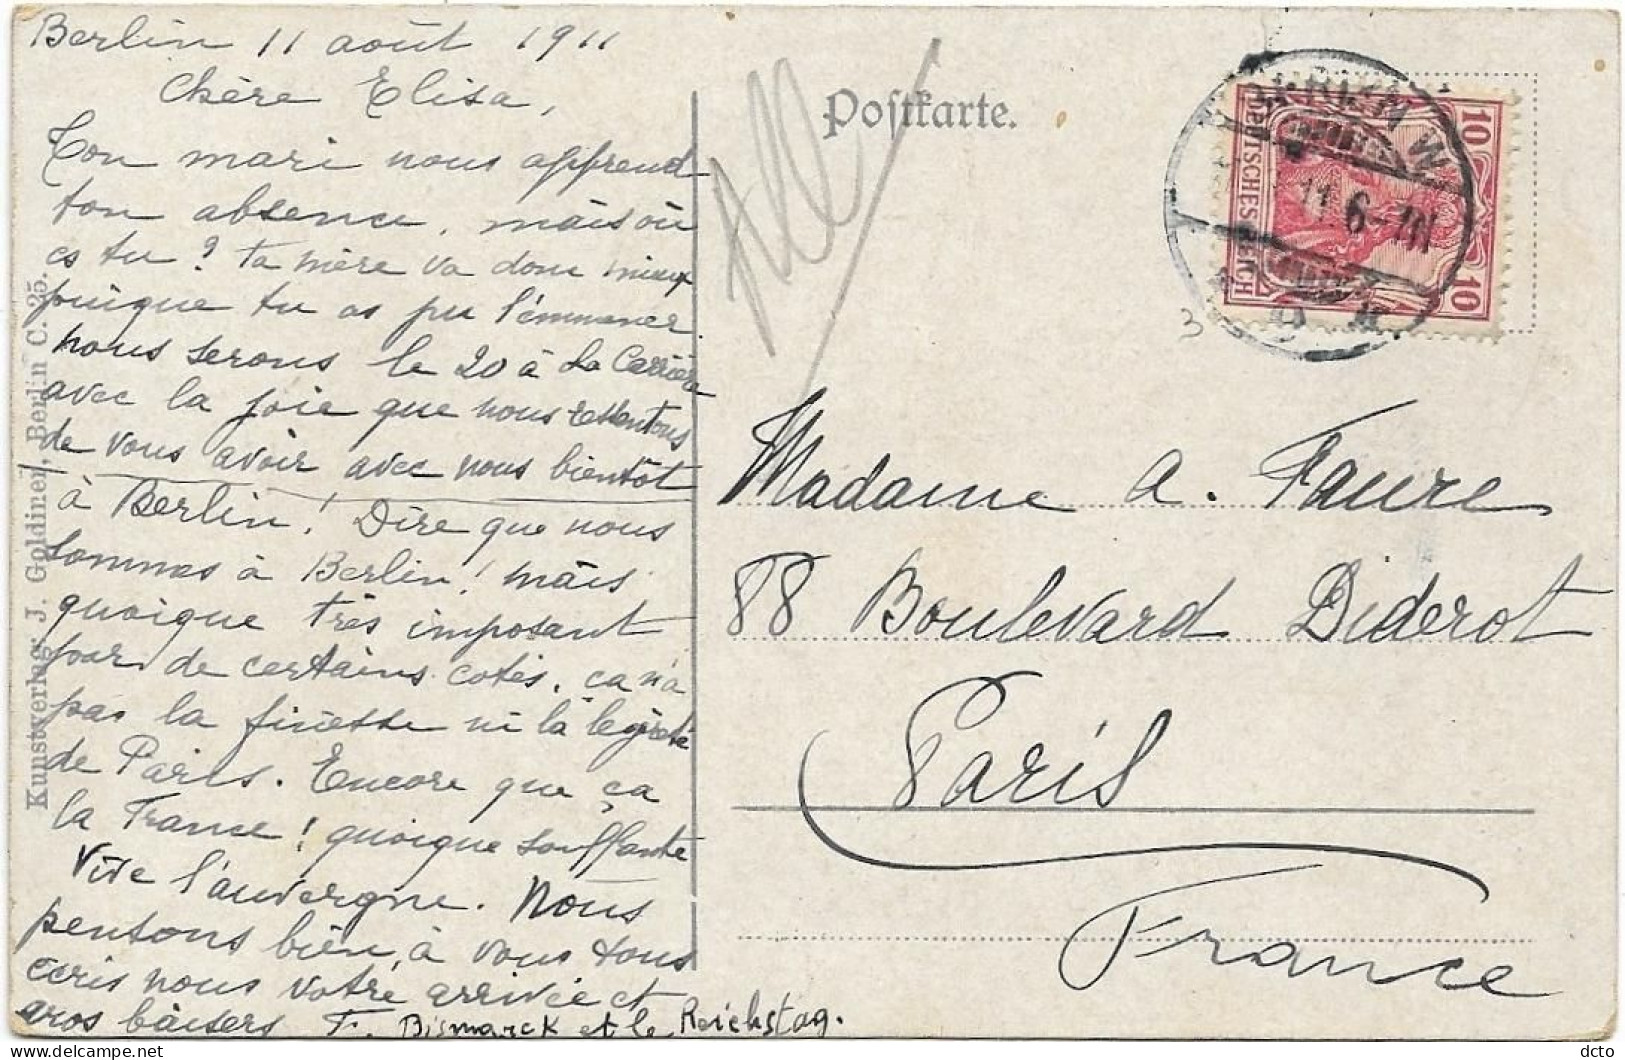 Berlin 11 août 1911
Chère Elisa,
Ton mari nous apprend
ton absence, mais où
es tu? ta mère va donc mieux
puisque tu as pu l'emmener.
nous serons le 20 à La Carrière
avec la joie que nous ressentons
de vous avoir avec nous bientôt
à Berlin! Dire que nous
sommes à Berlin! mais
quoique très imposant
par de certains cotés, ça n'a
pas la finesse ni la légèreté
de Paris. Encore que ça
la France! quoique souffante
Vive l'auvergne. Nous
pensons bien à vous tous
écris nous votre arrivée et
gros baisers F. Bismarck et le Reichstag.
Kunstverlag J. Goldiner, Berlin C. 25.
Postkarte.
BERLIN W.
11. 6-7N
DEUTSCHES REICH
10 10
3
Madame A. Faure
88 Boulevard Diderot
Paris
France
dcto